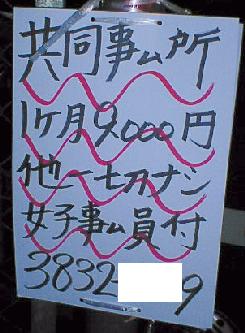 共同事ム所
1ヶ月9,000円
他一切ナシ
女子事ム員付
3832-    9